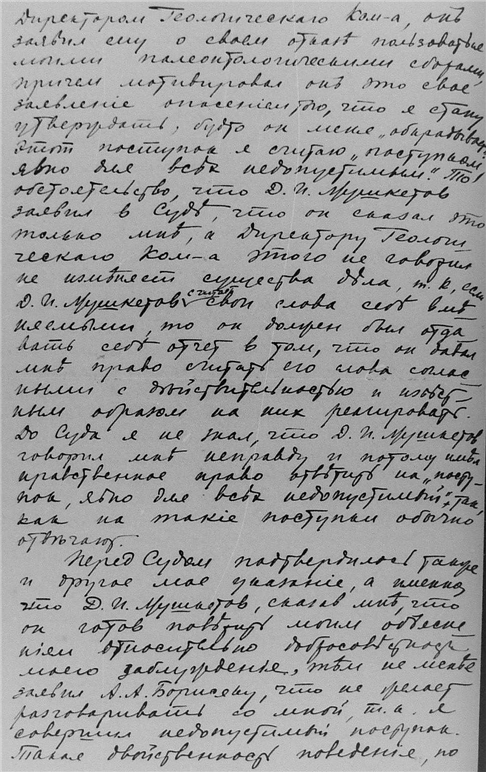 Директором Геологическаго Ком-а, онъ
заявил ему о своем отказѣ пользоваться
моими палеонтологическими сборами,
причем мотивировал онъ это свое
заявленіе опасеніем, что я стану
утверждать, будто он меня „обкрадывает“.
Этот поступок я считаю „поступком,
явно для всѣх недопустимым“. То
обстоятельство, что Д. И. Мушкетов
заявил в Судѣ, что он сказал это
только мнѣ, а Директору Геологи
ческаго Ком-а этого не говорил
не измѣняет существа дѣла, т. к. сам
Д. И. Мушкетов считает свои слова себѣ вмѣ
няемыми, то он должен был отда
вать себѣ отчет в том, что он давал
мнѣ право считать его слова соглас
ными с дѣйствительностью и извѣст
ным образом на них реагировать.
До Суда я не знал, что Д. И. Мушкетов
говорил мнѣ неправду и потому имѣл
нравственное право отвѣтить на „посту-
пок, явно для всѣх недопустимый“, так,
как на такіе поступки обычно
отвѣчают.
Перед Судом подтвердилось также
и другое мое указаніе, а именно
что Д. И. Мушкетов, сказав мнѣ, что
он готов повѣрить моим объясне
ніям относительно добросовѣстности
моего заблужденія, тѣм не менѣе
заявил А. А. Борисяку, что не желает
разговаривать со мной, т. к. я
совершил недопустимый поступок.
Такая двойственность поведенія, по